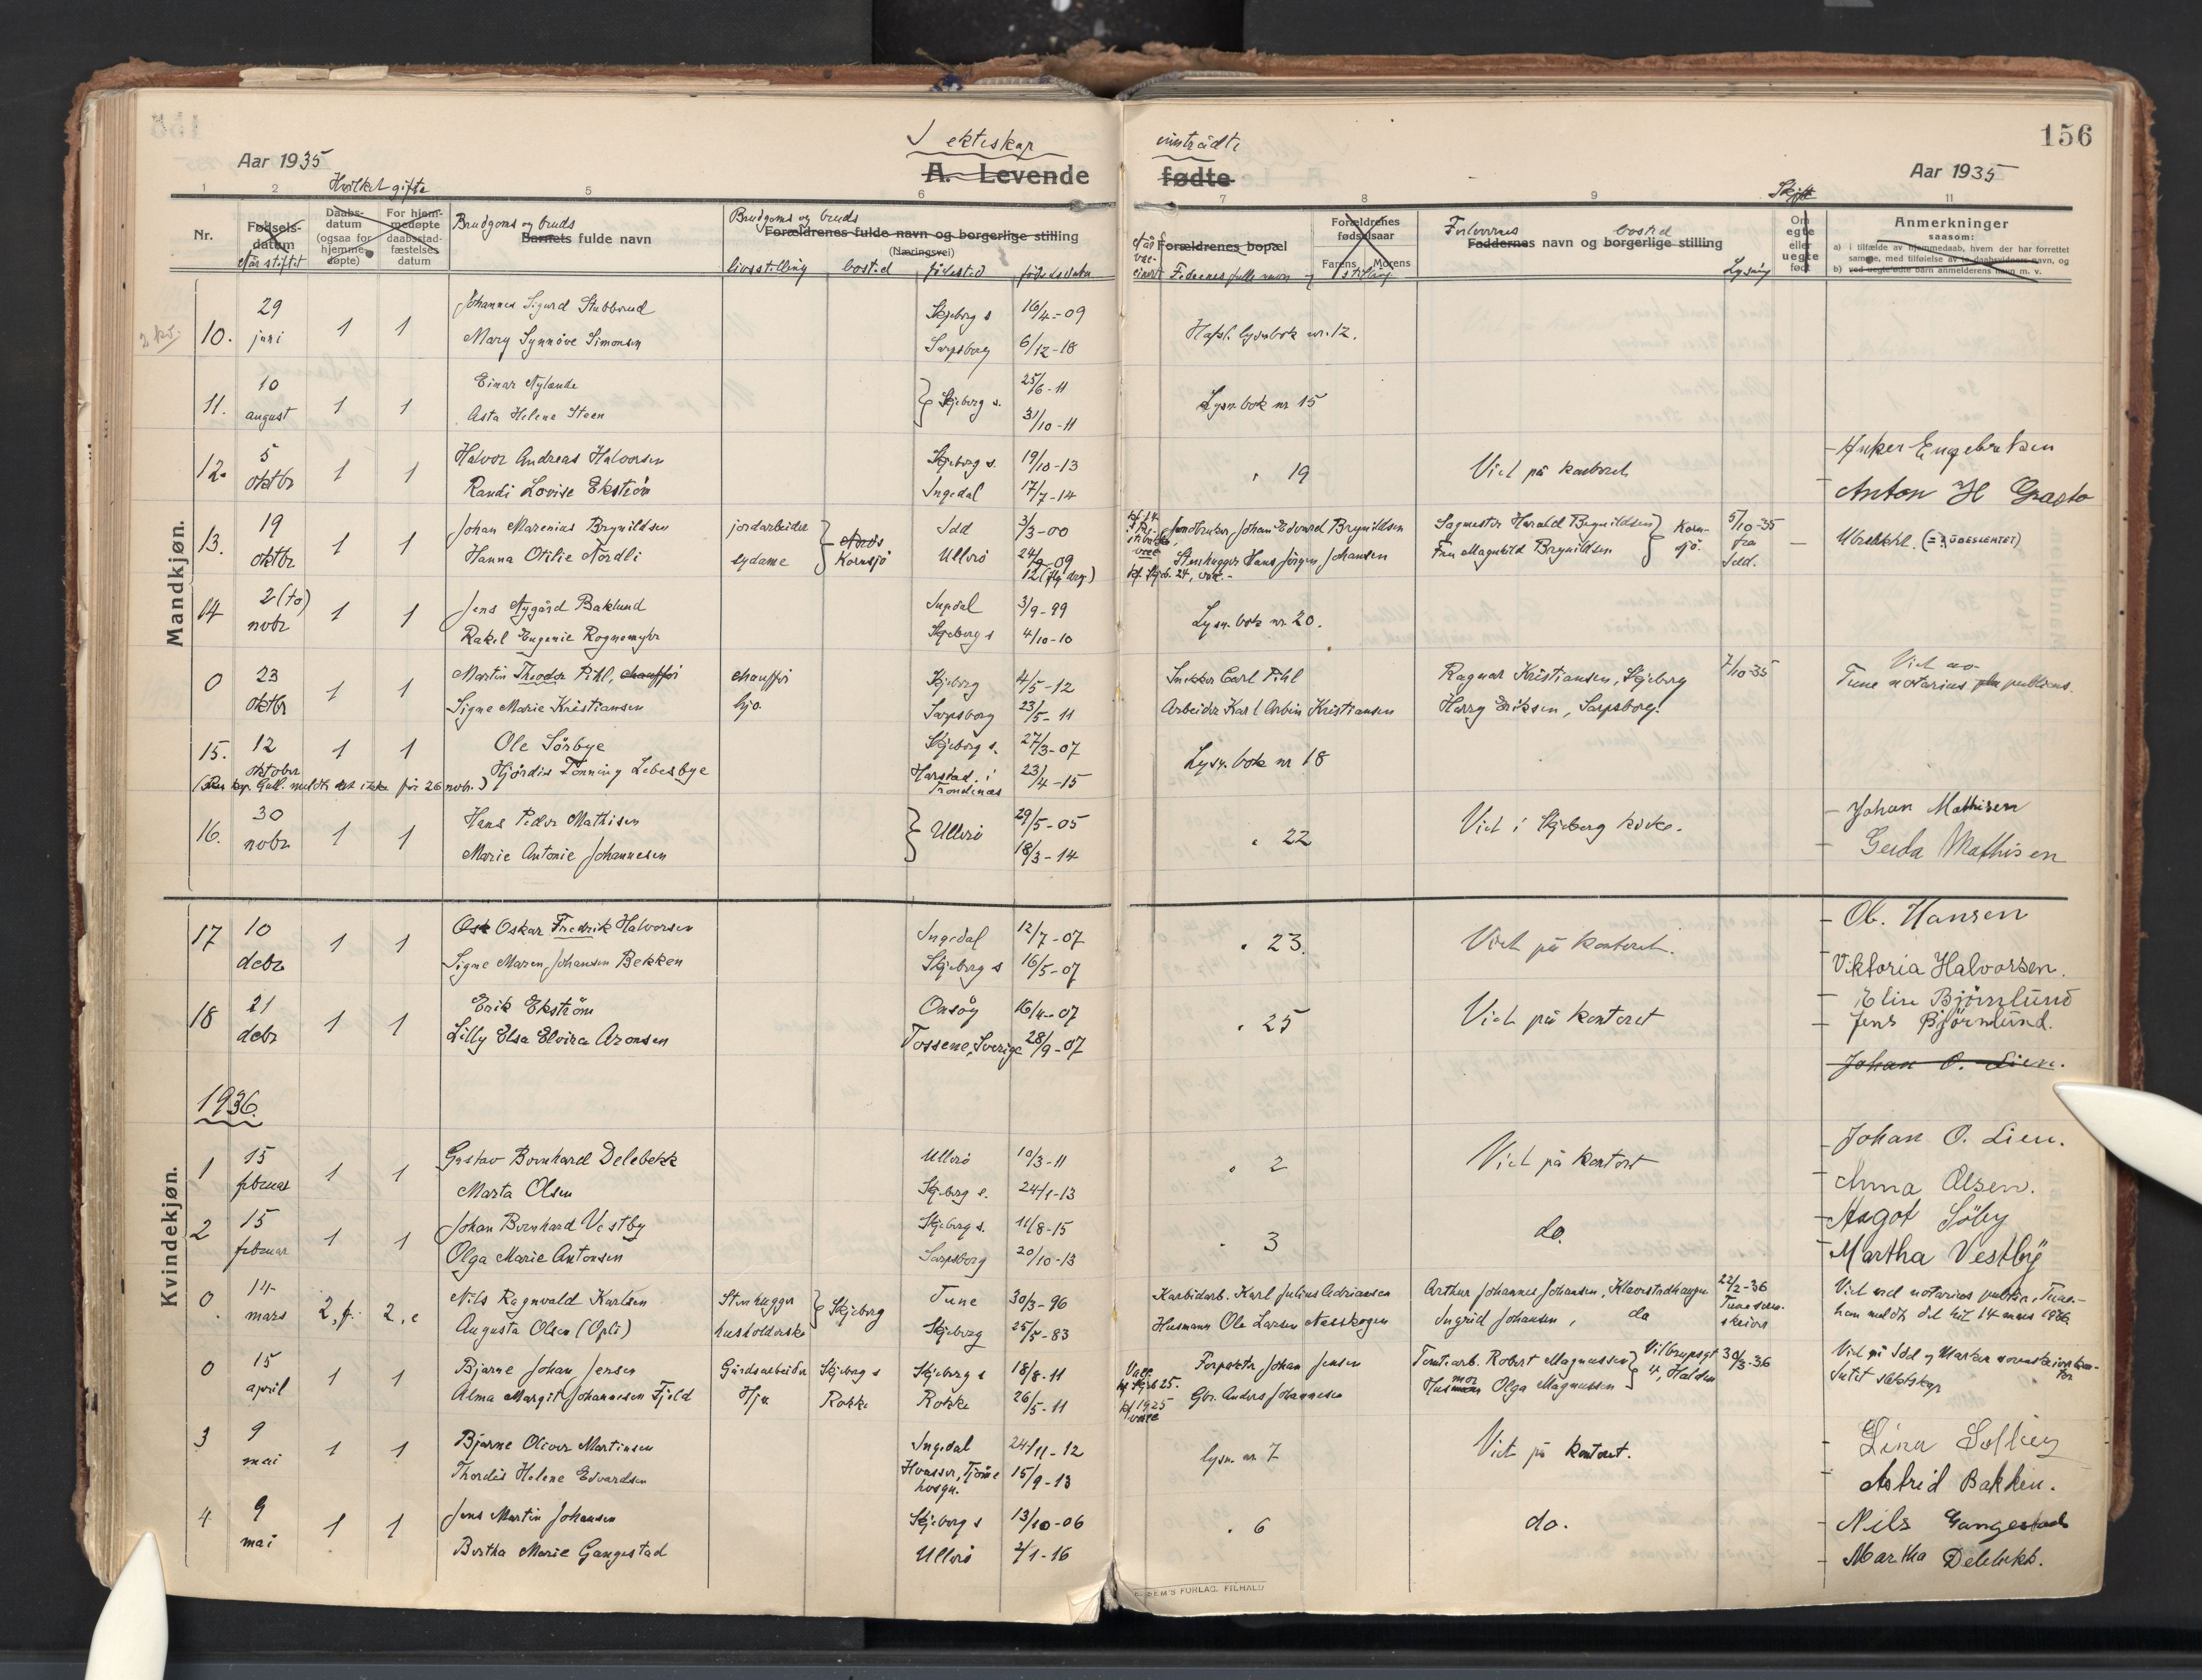 156
Aar 1935
I ekteskap
inntrådte
Aar 1935
A. Levende
fødte
Hvilket gifte
1 2 5 6 7 8 9 11
Nr.
Fødsels-datum
Når stiftet
Daabs-datum (ogsaa for hjemme-døpte)
For hjem-medøpte daabsstad-fæstelses datum
Brudgoms og bruds
Barnets fulde navn
Brudgoms og bruds
Forældrenes fulde navn og borgerlige stilling
(Næringsvei)
livsstilling bosted fødested fødselsdatum
Forældrenes bopæl
Fedrenes fulle navn og stilling
Forældrenes fødselsaar
Farens Morens
Forlovernes bosted
Faddernes navn og borgerlige stilling
Lysning
Om egte eller uegte født
Anmerkninger
saasom:
a) i tilfælde av hjemmedaab, hvem der har forrettet samme, med tilføielse av to daabsvidners navn, og
b) ved uegte fødte barn anmelderens navn m. v.
Mandkjøn.
10. 29 juni 1 1 Johannes Sigurd Stubberud Skjeberg s 16/4-09
Mary Synnöve Simonsen Sarpsborg 6/12-18
Hafsl. lysnbok nr. 12.
11. 10 august 1 1 Einar Nylende Skjeberg s. 25/6-11
Asta Helene Steen 31/10-11
Lysn.bok nr 15
12. 5 oktbr 1 1 Halvor Andreas Halvorsen Skjeberg s. 19/10-13
Randi Lovise Ekström Ingedal 17/7-14
" 19 Viet på kontoret
Anker Engebretsen
Anton H Grasto
13. 19 oktbr 1 1 Johan Marenius Brynildsen jordarbeider Idd 3/3-00
Hanna Otilie Nordli sydame Kornsjö Ullerö 24/9-09
12 (flg. dag.)
Jordbruker Johan Edvard Brynildsen
Stenhugger Hans Jörgen Johansen
Sagmester Harald Brynildsen
Fru Magnhild Brynildsen Kornsjö. 5/10-35 fra Idd.
14 2 (to) novbr 1 1 Jens Nygård Baklund Ingedal 3/9-99
Rakel Eugenie Rognemyhr Skjeberg s 4/10-10
Lysn.bok nr 20.
0 23 oktbr 1 1 Martin Theodor Pihl, chauffør chauffør Skjeberg 4/5-12
Signe Marie Kristiansen hjo. Sarpsborg 23/5-11
Snekker Carl Pihl
Arbeider Karl Arbin Kristiansen
Ragnar Kristiansen, Skjeberg
Harry Eriksen, Sarpsborg.
7/10-35
Viet av
Tune notarius publicus.
15. 12 oktober 1 1 Ole Sörbye Skjeberg s. 27/3-07
Hjördis Tönning Lebesbye Harstad i Trondenes 23/4-15
Lysn.bok nr 18
16. 30 novbr 1 1 Hans Peder Mathisen Ullerö 29/5-05
Marie Antonie Johannesen 18/3-14
" 22 Viet i Skjeberg kirke.
Johan Mathisen
Gerda Mathisen
17 10 decbr 1 1 Osk Oskar Fredrik Halvorsen Ingedal 12/7-07
Signe Maren Johansen Bekken Skjeberg s 16/5-07
" 23. Viet på kontoret.
Ob. Hansen
Viktoria Halvorsen.
18 21 decbr 1 1 Erik Ekström Onsöy 16/4-07
Lilly Elsa Elvira Aronsen Tossene, Sverige 28/9-07
" 25 Viet på kontoret
Elise Björnlund
Jens Björnlund.
Johan O. Lien.
1936.
Kvindekjøn.
1 15 februar 1 1 Gustav Bernhard Delebekk Ullerö 10/3-11
Marta Olsen Skjeberg s. 24/1-13
" 2 Viet på kontoret
Johan O. Lien.
Anna Olsen.
2 15 februar 1 1 Johan Bernhard Vestby Skjeberg s. 11/8-15
Olga Marie Antonsen Sarpsborg 20/10-13
" 3 do.
Aagot Söby
Martha Vestby
0. 14 mars 2, f. 2, e Nils Ragnvald Karlsen Stenhugger Skjeberg Tune 30/3-96
Augusta Olsen (Opli) husholderske Skjeberg 25/5-83
Karbidarb. Karl Julius Adriansen
Husmann Ole Larsen Nesskogen
Arthur Johannes Johansen, Klavestadhaugen
Ingrid Johansen, do
22/2-36
Viet ved notarius public., Tune.
0 15 april 1 1 Bjarne Johan Jensen Gårdsarbeider Skjeberg s Skjeberg s 18/8-11
Alma Margit Johannesen Fjeld Hjv. Rokke Rokke 26/5-11
Forpakter Johan Jensen
Gbr. Anders Johannesen
Tomtearb. Robert Magnussen
Husmor Olga Magnussen Halden 30/3-36
3 9 mai 1 1 Bjarne Oliver Martinsen Ingedal 24/11-12
Thordis Helene Edvardsen Hvasser, Tjöme 15/9-13
lysn. nr. 7 Viet på kontoret.
Astrid Bakken.
4 9 mai 1 1 Jens Martin Johansen Skjeberg s 13/10-06
Bertha Marie Gangestad Ullerö 2/1-16
" 6 do.
Nils Gangestad
Martha Delebekk.